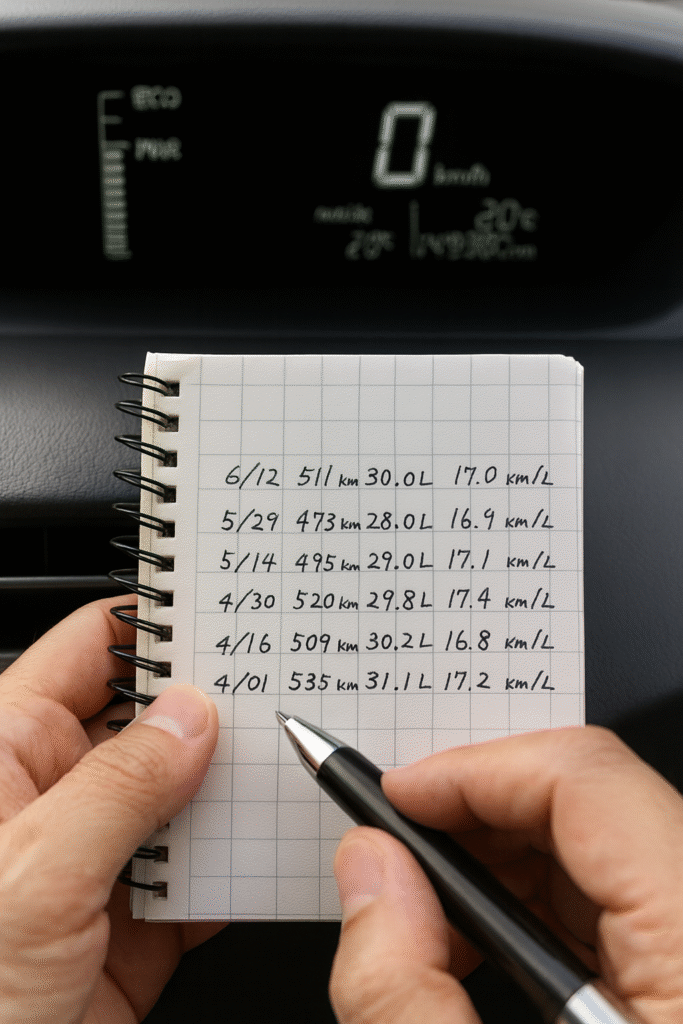 ECO
PWR
0 km/h
20°C
20°C
6/12 511 km 30.0L 17.0 km/L
5/29 473 km 28.0L 16.9 km/L
5/14 495 km 29.0L 17.1 km/L
4/30 520 km 29.8L 17.4 km/L
4/16 509 km 30.2L 16.8 km/L
4/01 535 km 31.1L 17.2 km/L